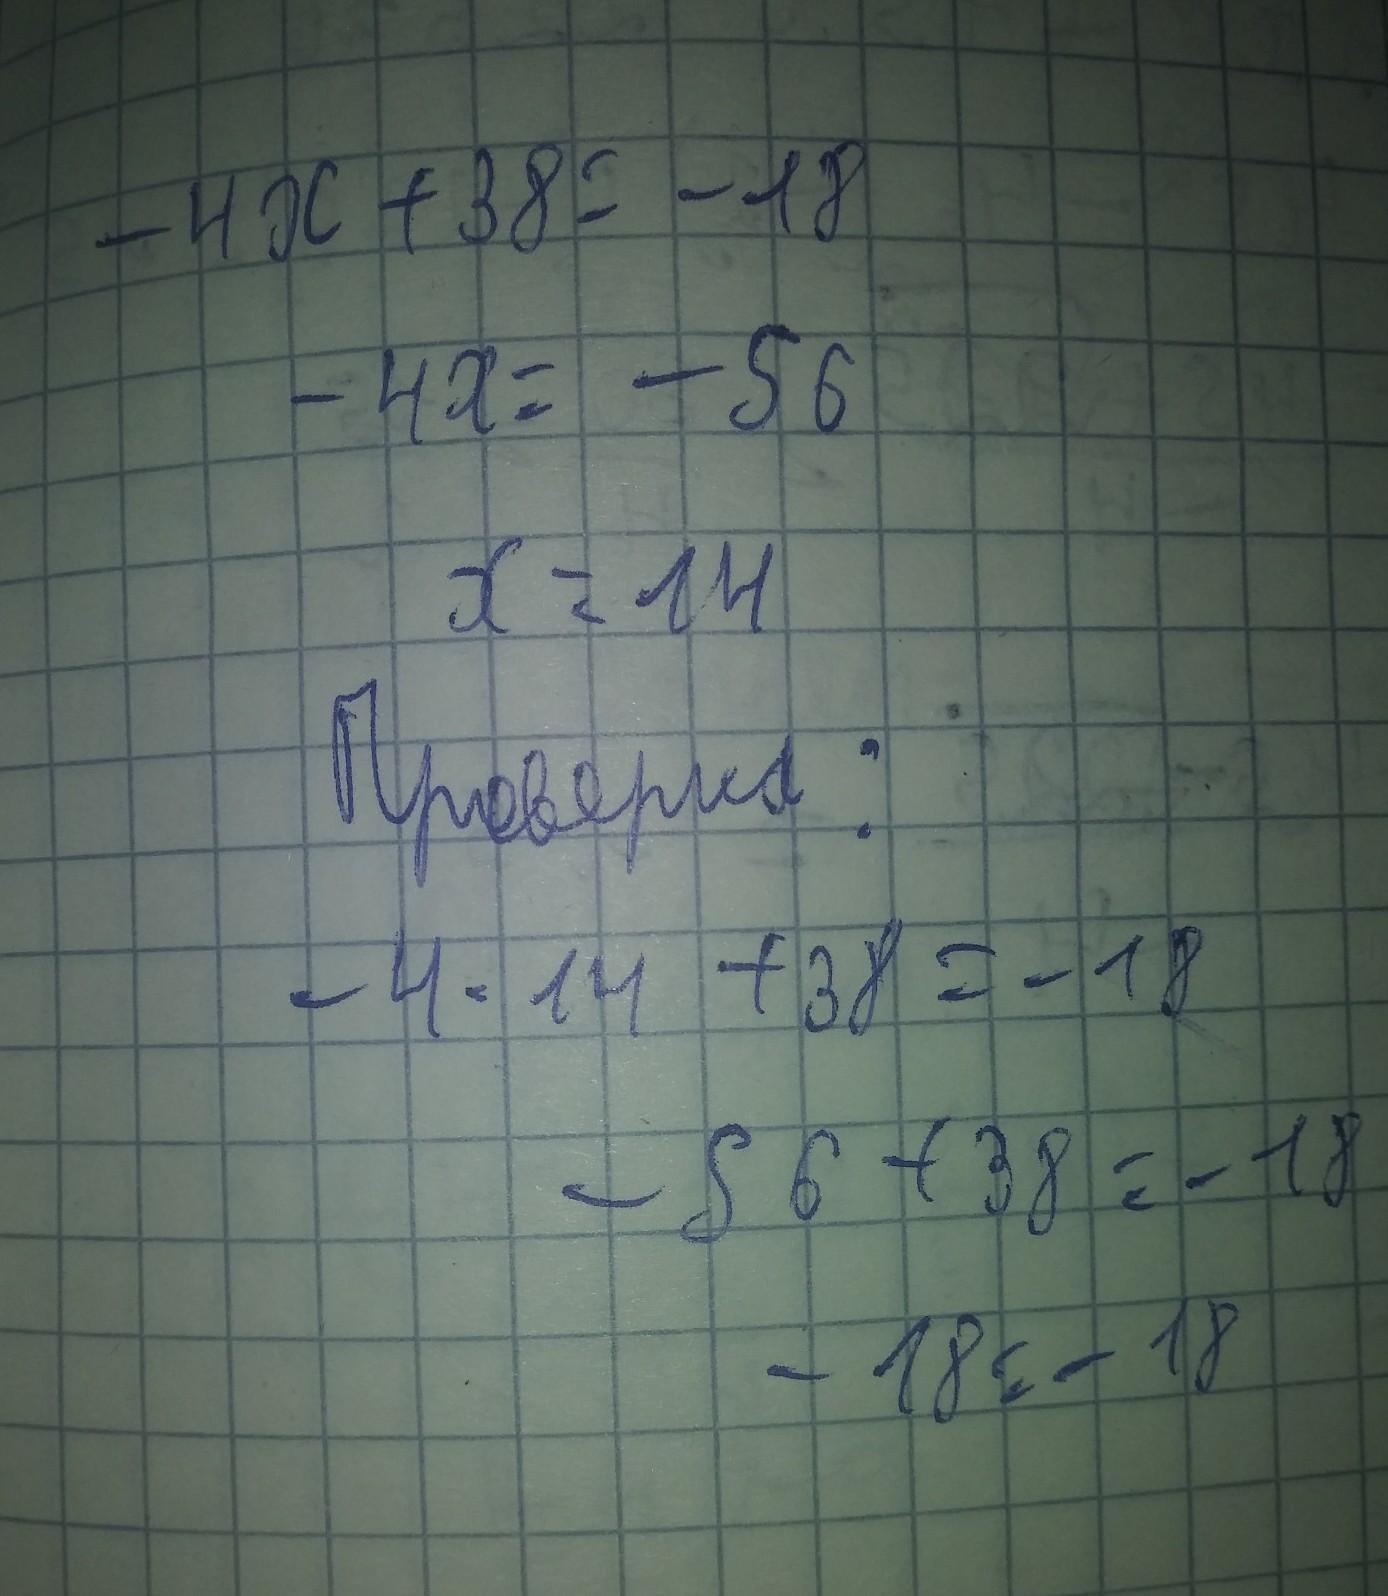 -4x + 38 = -18
-4x = -56
x = 14
Проверка:
-4 · 14 + 38 = -18
-56 + 38 = -18
-18 = -18